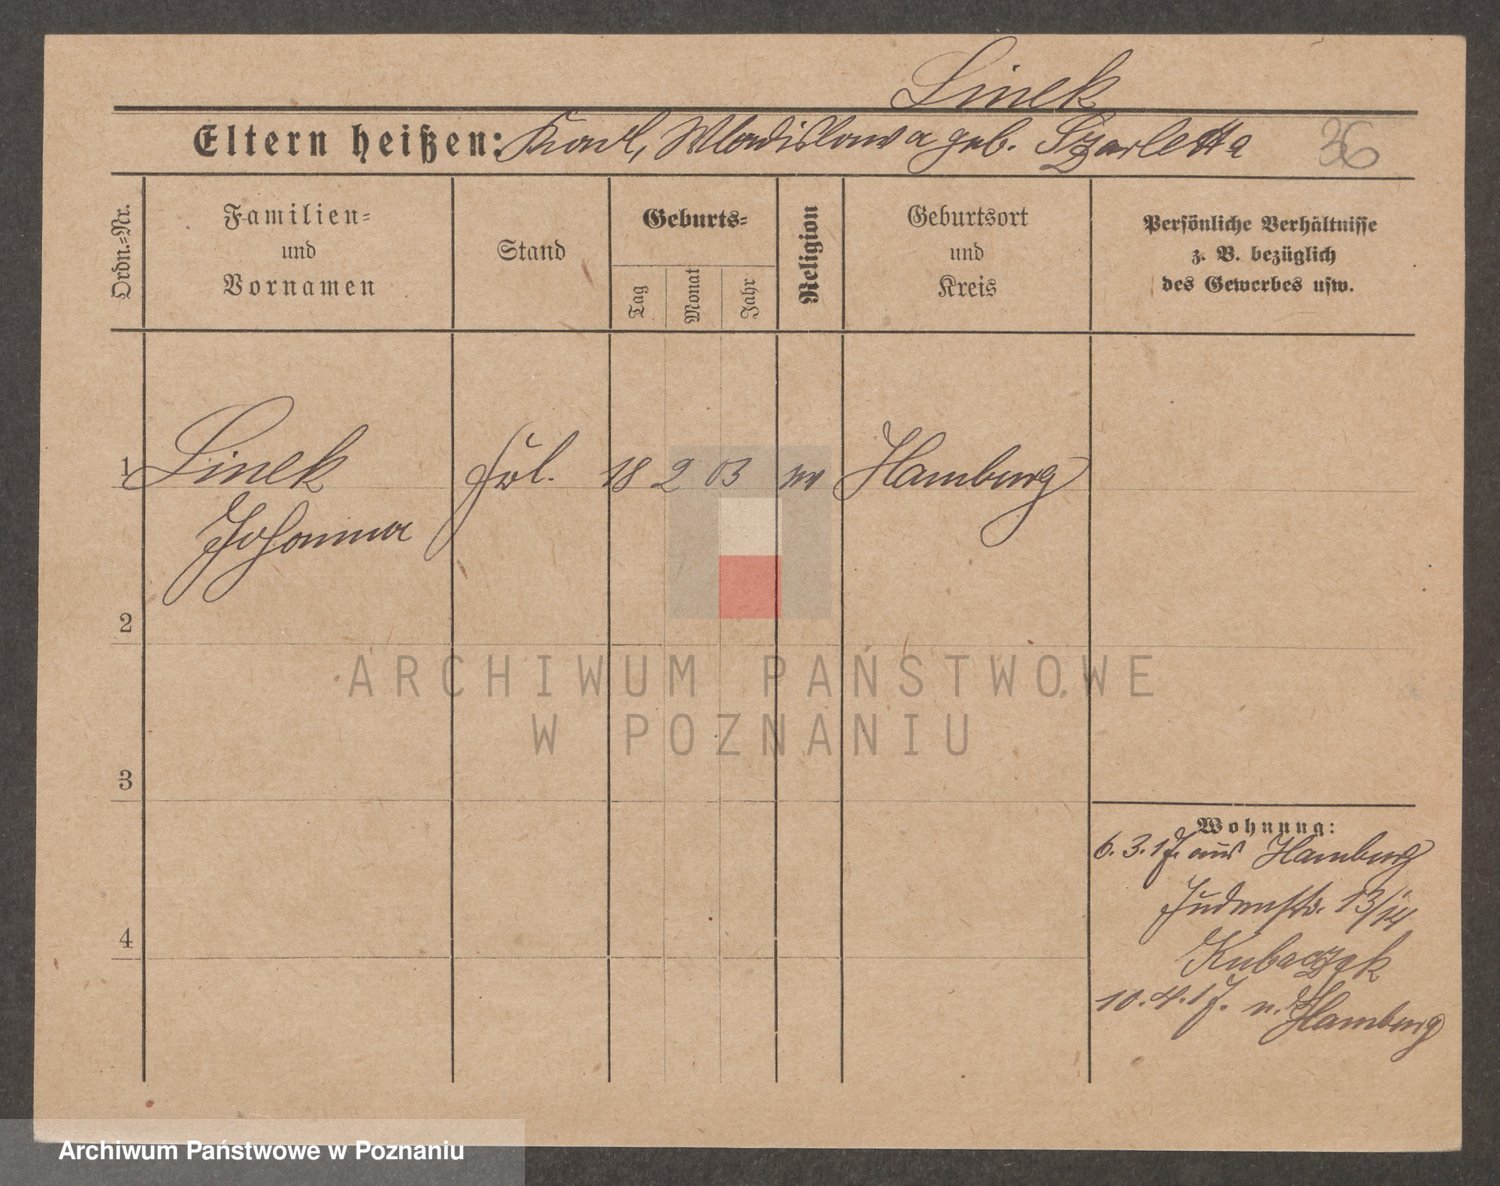 Linek
Eltern heißen: Karl, Wladislawa geb. Szarletta
36
Ordn.-Nr.
Familien- und Vornamen
Stand
Geburts-
Tag
Monat
Jahr
Religion
Geburtsort und Kreis
Persönliche Verhältnisse
z. B. bezüglich
des Gewerbes usw.
1 Linek Frl. 18 2 03 Hamburg
Johanna
2
ARCHIWUM PAŃSTWOWE
W POZNANIU
3
Wohnung:
6. 3. 17. aus Hamburg
Judenstr. 13/14
4
Kubaczek
10. 4. 17. n. Hamburg
Archiwum Państwowe w Poznaniu